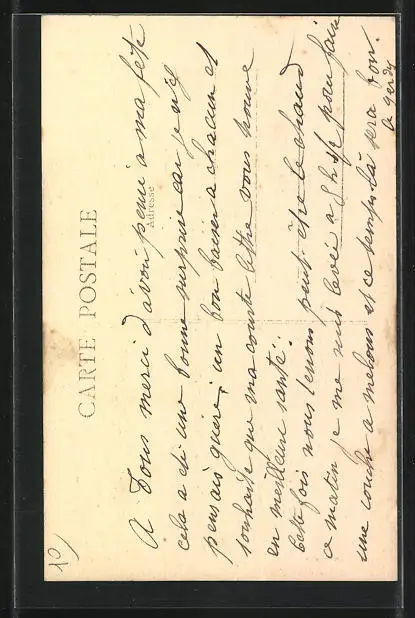 CARTE POSTALE
Adresse
A Tous merci d'avoir pensé a ma fête
cela a été une bonne surprise car je n'y
pensais guère, un bon baiser a chacun et
souhaite que ma courte lettre vous trouve
en meilleure santé.
Cette fois nous tenons peut être le chaud
ce matin je me suis levée a pour faire
une couche a melons et ce temps là sera bon.